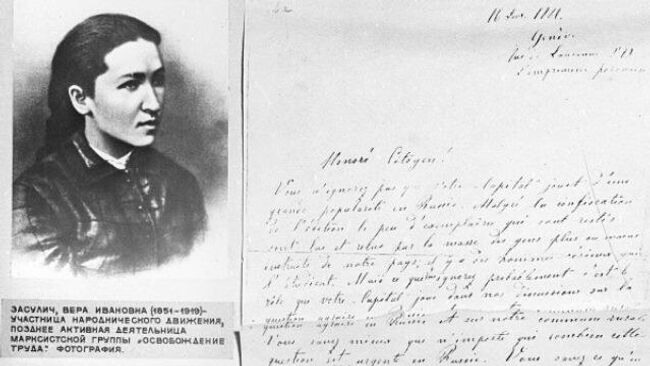 ЗАСУЛИЧ, ВЕРА ИВАНОВНА (1851-1919)-
УЧАСТНИЦА НАРОДНИЧЕСКОГО ДВИЖЕНИЯ,
ПОЗДНЕЕ АКТИВНАЯ ДЕЯТЕЛЬНИЦА
МАРКСИСТСКОЙ ГРУППЫ „ОСВОБОЖДЕНИЕ
ТРУДА". ФОТОГРАФИЯ.
1881.
Genève.
Rue de Lausanne
L'imprimerie polonaise
Honoré Citoyen!
Vous n'ignorez pas que votre Capital jouit d'une
grande popularité en Russie. Malgré la confiscation
de l'édition le peu d'exemplaires qui sont restés
sont lus et relus par la masse des gens plus ou moins
instruits de notre pays, il y a des hommes sérieux qui
l'étudient. Mais ce que ignorez probablement c'est le
rôle que votre Capital joue dans nos discussions sur la
question agraire en Russie et sur notre commune rurale
Vous savez mieux que n'importe qui combien cette
question est urgent en Russie. Vous savez ce qu'en